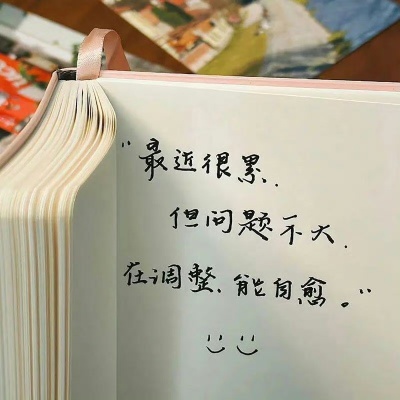 "最近很累.
但问题不大.
在调整、能自愈。"